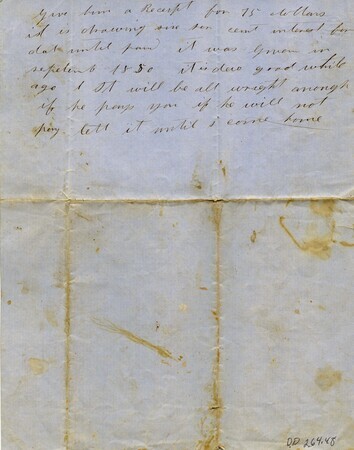 give him a Receipt for 15 dollars
it is drawing six cent interest from
date until paid it was given in
septemb 1850 it is due good while
ago & It will be all wright anough
if he pays you if he will not
pay lett it until i come home
DD 264.48